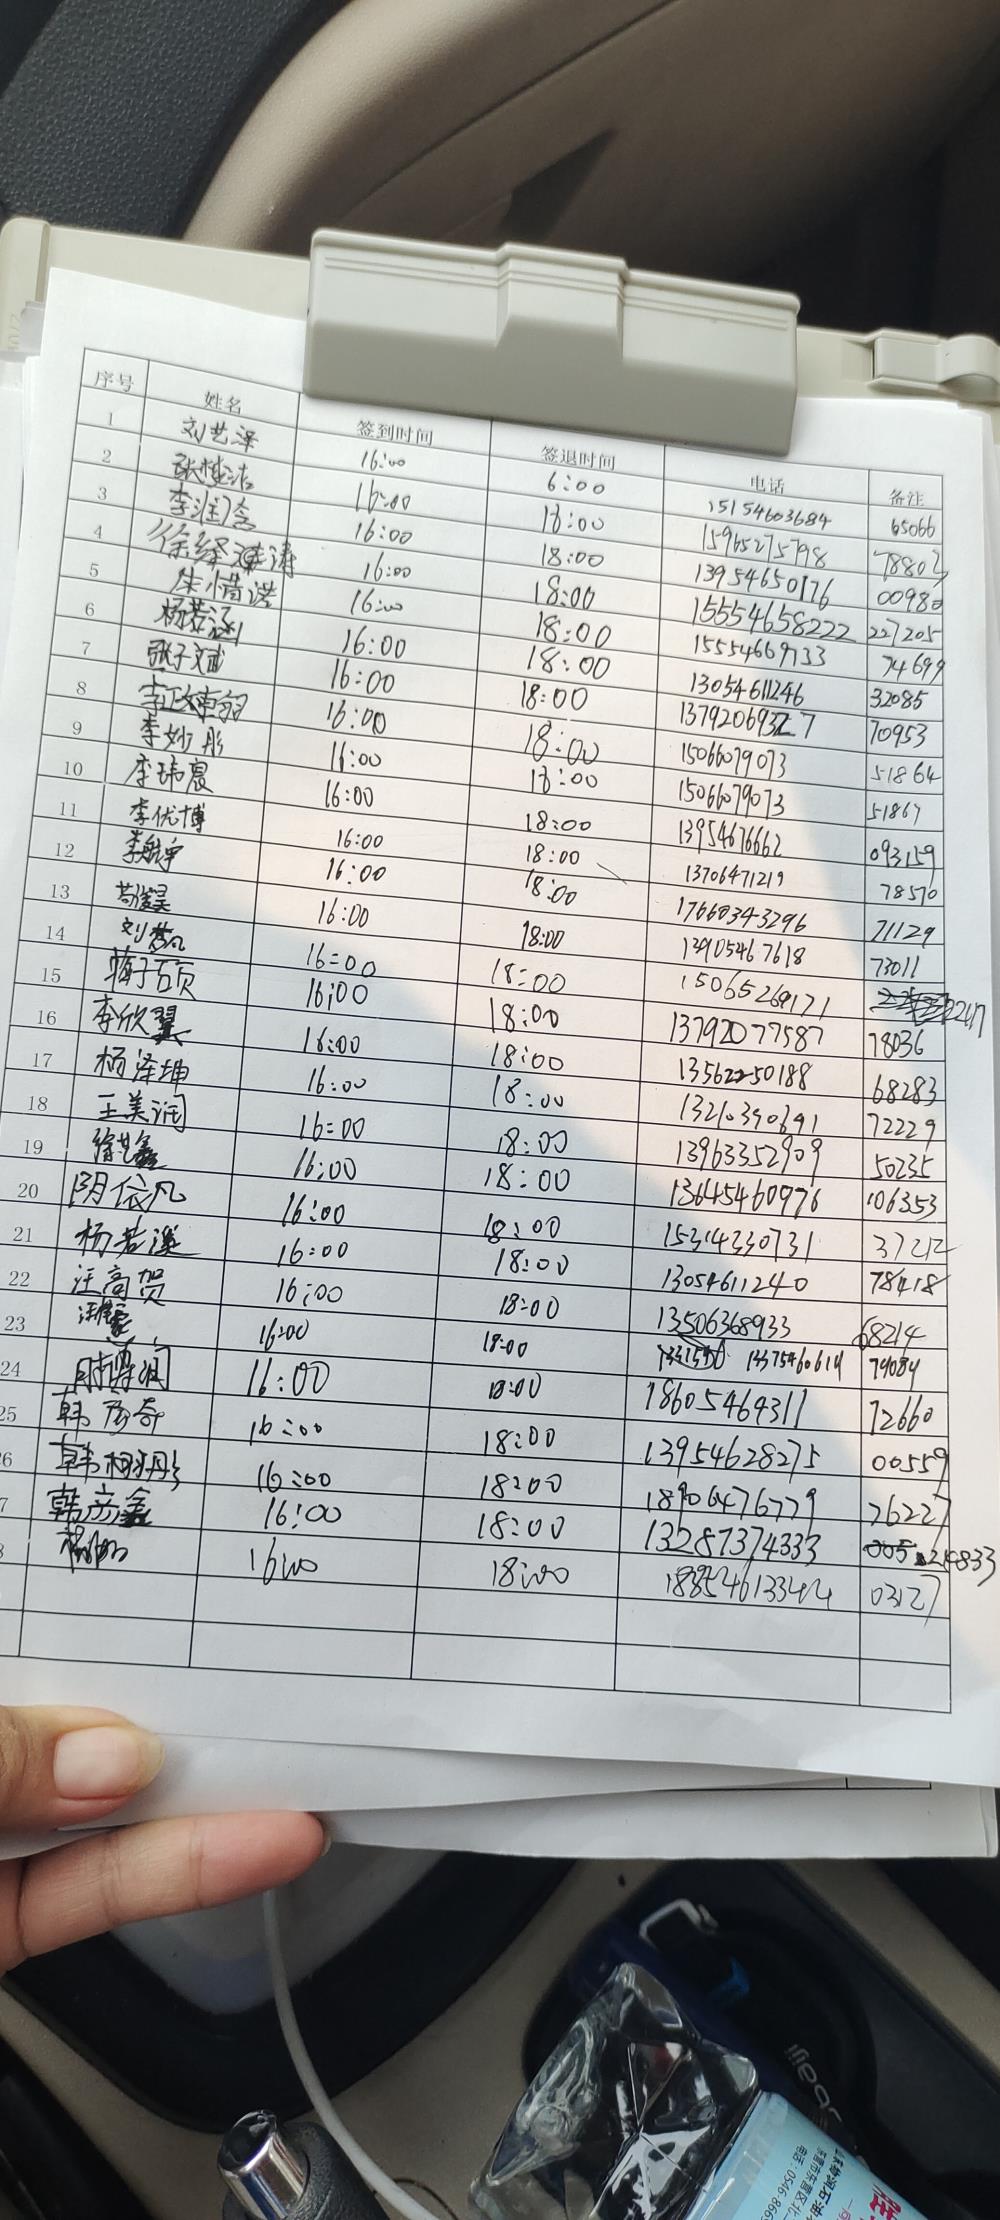 序号 姓名 签到时间 签退时间 电话 备注
1 刘艺泽 16:00 6:00 15154603684 65066
2 16:00 18:00 15965275798 78803
3 李润 16:00 18:00 13954650176 00980
4 徐绎 16:00 18:00 15554658222 227205
5 朱惜洪 16:00 18:00 15554669733 74699
6 杨若涵 16:00 18:00 13054611246 32085
7 张子斌 16:00 18:00 13792069327 70953
8 李政 16:00 18:00 15066079073 51864
9 李妙彤 16:00 18:00 15066079073 51867
10 李玮宸 16:00 18:00 13954676662 093159
11 李优博 16:00 18:00 13706471219 78570
12 李航宇 16:00 18:00 17660343296 71129
13 16:00 18:00 13905467618 73011
14 刘梦凡 16:00 18:00 15065269171
15 韩子硕 16:00 18:00 13792077587 78036
16 李欣翼 16:00 18:00 13562250188 68283
17 杨泽坤 16:00 18:00 13210390691 72229
18 王美润 16:00 18:00 13963352909 50235
19 徐艺鑫 16:00 18:00 13645460976 106353
20 阴依凡 16:00 18:00 15314330731 37212
21 杨若溪 16:00 18:00 13054611240 78418
22 汪高贺 16:00 18:00 13506368933 68214
23 16:00 18:00 13375460614 79084
24 时博润 16:00 18:00 18605464311 72660
25 韩 奇 16:00 18:00 13954628275 00559
26 韩 彤 16:00 18:00 18906476779 26227
7 韩 鑫 16:00 18:00 13287374333 214833
8 16:00 18:00 18854613344 03127